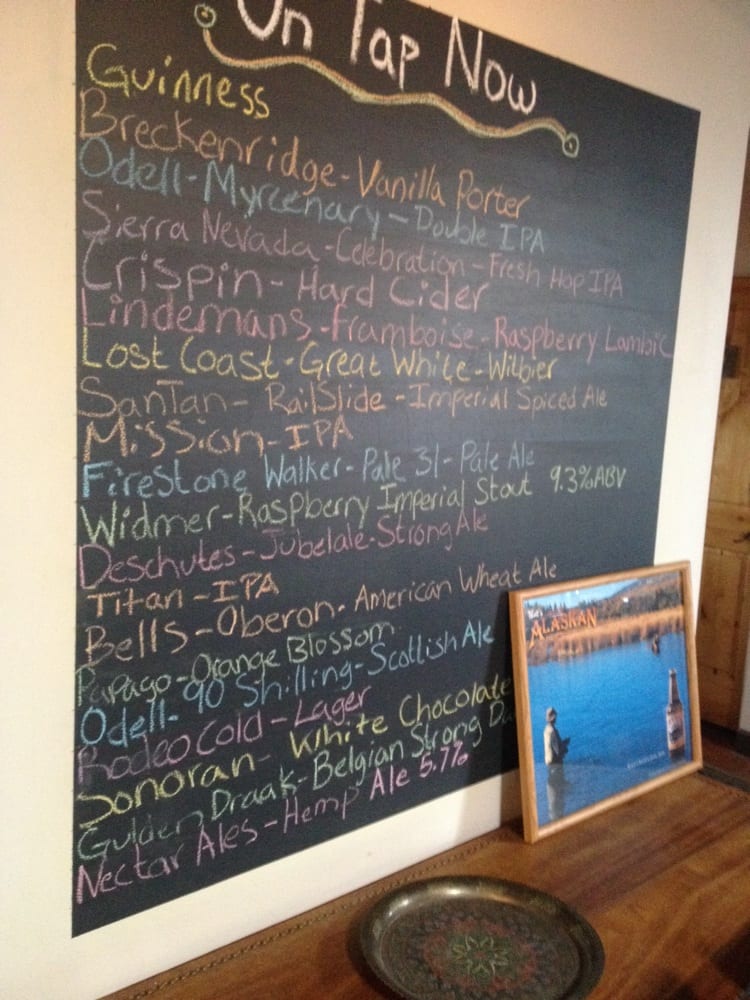 On Tap Now
Guinness
Breckenridge - Vanilla Porter
Odell - Myrcenary - Double IPA
Sierra Nevada - Celebration - Fresh Hop IPA
Crispin - Hard Cider
Lindemans - Framboise - Raspberry Lambic
Lost Coast - Great White - Witbier
SanTan - RailSlide - Imperial Spiced Ale
Mission - IPA
Firestone Walker - Pale 31 - Pale Ale
Widmer - Raspberry Imperial Stout 9.3% ABV
Deschutes - Jubelale - Strong Ale
Titan - IPA
Bells - Oberon - American Wheat Ale
Papago - Orange Blossom
Odell - 90 Shilling - Scottish Ale
Rodeo Cold - Lager
Sonoran - White Chocolate
Gulden Draak - Belgian Strong
Nectar Ales - Hemp Ale 5.7%
ALASKAN